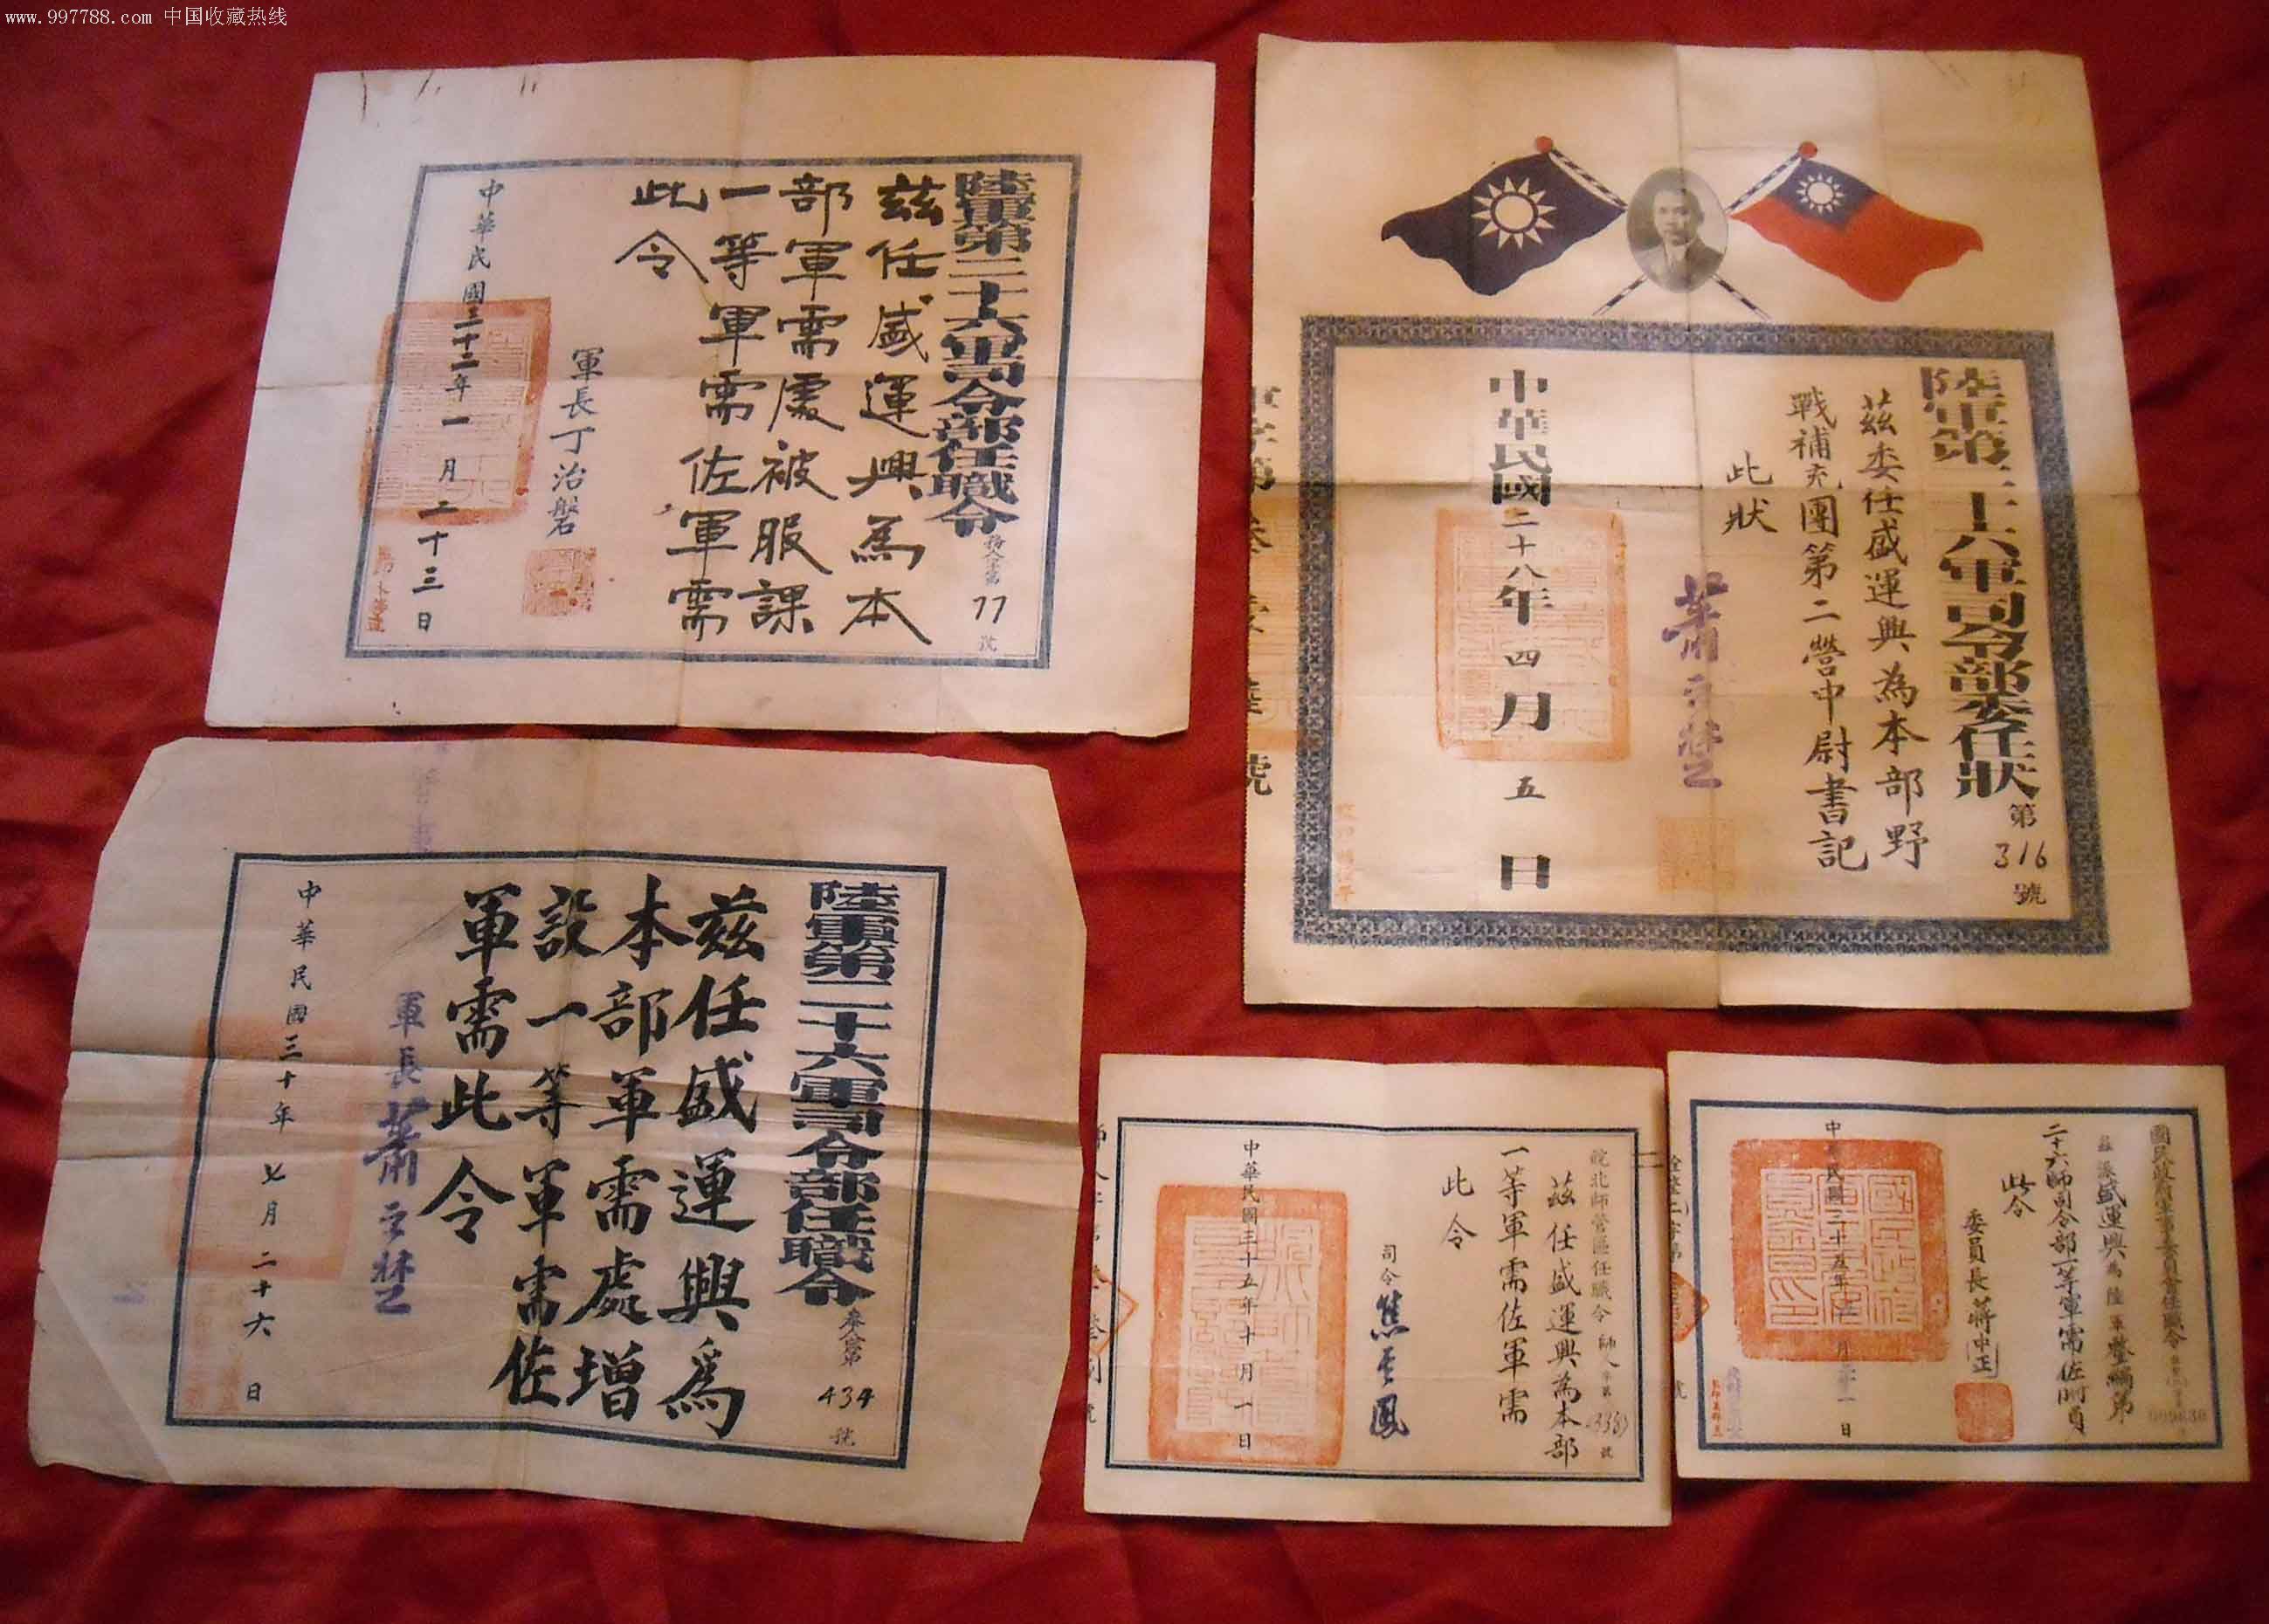 www.997788.com 中国收藏热线
陸軍第二十六軍司令部任職令
77
號
茲任盛運興為本
部軍需處被服課
一等軍需佐軍需
此令
軍長丁治磐
中華民國三十二年一月二十三日
陸軍第二十六軍司令部委任狀
第
316
號
茲委任盛運興為本部野
戰補充團第二營中尉書記
此狀
蕭之楚
中華民國二十八年四月五日
陸軍第二十六軍司令部任職令
434
號
茲任盛運興為
本部軍需處增
設一等軍需佐
軍需此令
軍長蕭之楚
中華民國三十年七月二十六日
皖北師管區任職令
號
茲任盛運興為本部
一等軍需佐軍需
此令
司令焦其鳳
中華民國三十五年十月一日
國民政府軍事委員會任職令
盛運興為陸軍整編第
二十六師司令部一等軍需佐附員
此令
委員長蔣中正